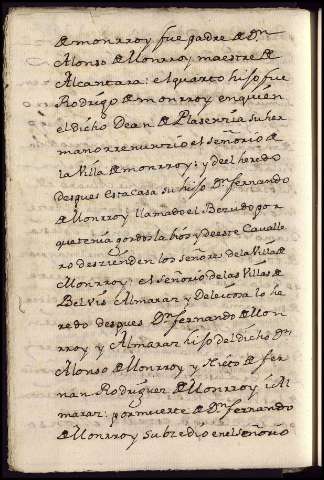 de monrroy fue padre de Dn
Alonso de Monrroy maestre de
Alcantara: el quarto hijo fue
Rodrigo de monrroy en quien
el dicho Dean de Plasençia su her
mano rrenunçio el señorio de
la Villa de monrroy: y de el heredo
despues esta casa su hijo Dn fernando
de Monrroy llamado el Bezudo por
que tenia gordos labios y de este Cavalle
ro desçienden los señores de la Villa de
Monrroy; el señorio de las Villas de
Belvis Almaraz y Deleitosa lo he
redo despues Dn fernando de Mon
rroy y Almaraz hijo del dicho Dn
Alonso de Monrroy y Nieto de fer
nan Rodriguez de Monrroy i Al
maraz: por muerte de Dn fernando
de Monrroy subzedio en el señorio